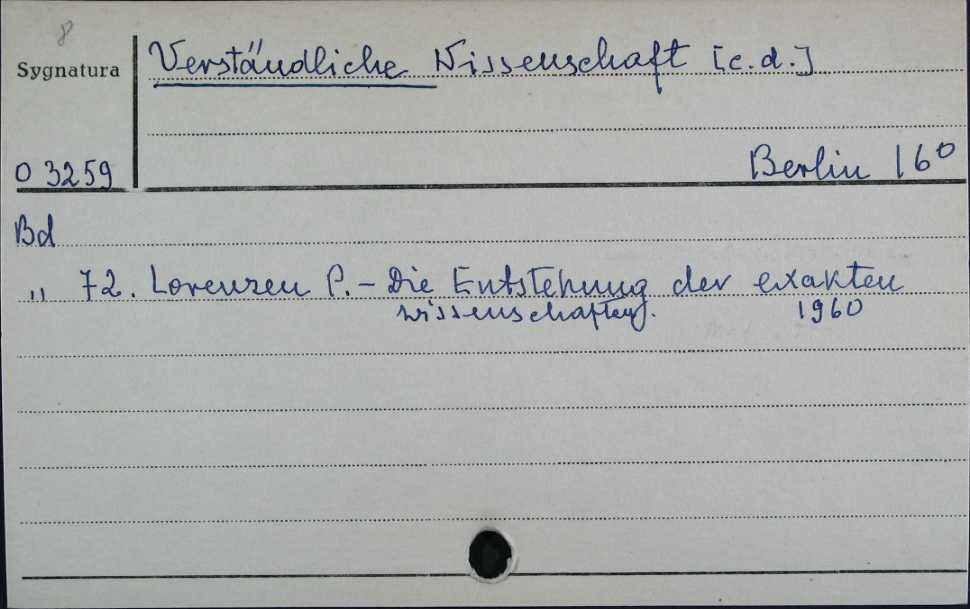 8
Sygnatura
Verständliche Wissenschaft [c.d.]
O 3259
Berlin 16°
Bd
„ 72. Lorenzen P. – Die Entstehung der exakten
wissenschaften. 1960